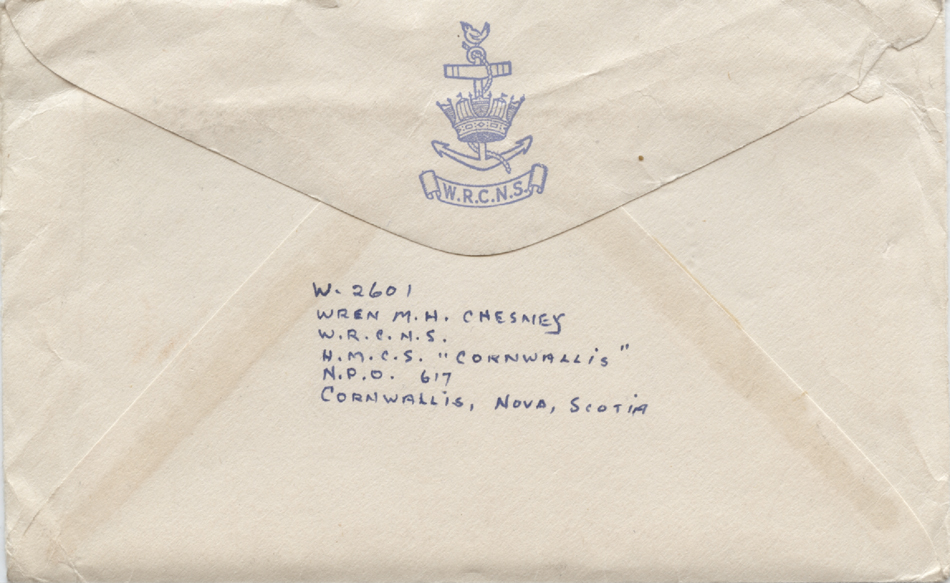 W.R.C.N.S.
W. 2601
WREN M.H. CHESNEY
W.R.C.N.S.
H.M.C.S. "CORNWALLIS"
N.P.O. 617
CORNWALLIS, NOVA, SCOTIA